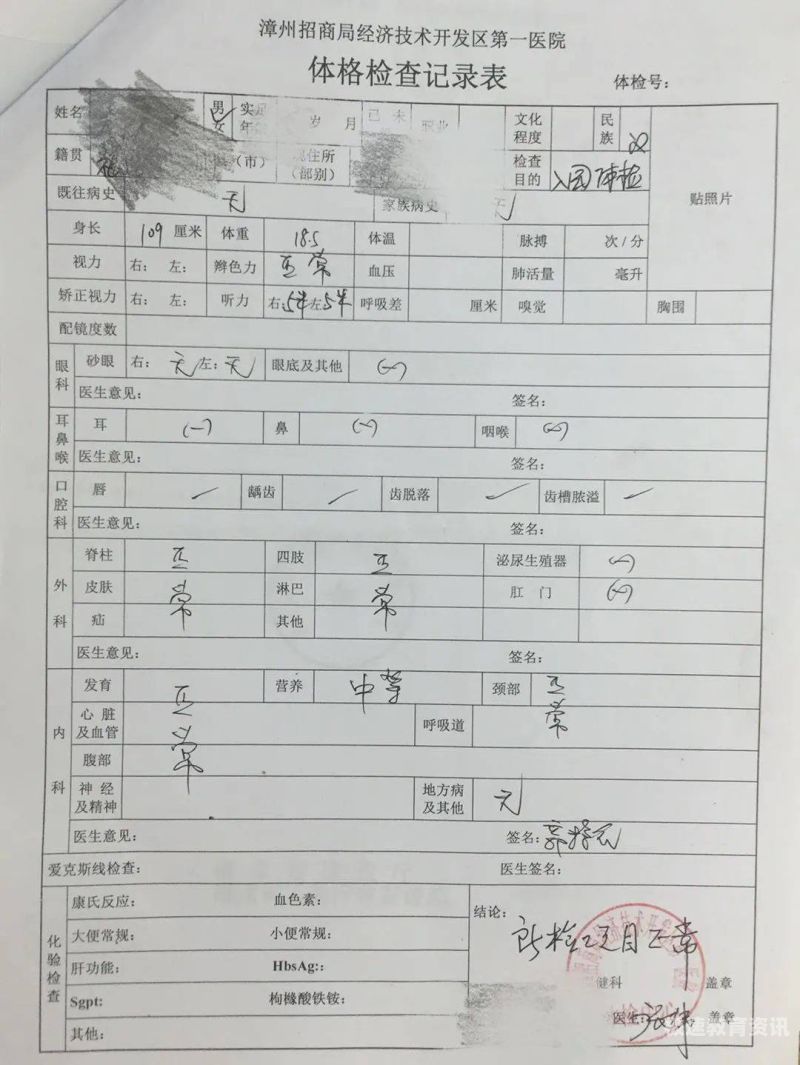 漳州招商局经济技术开发区第一医院
体格检查记录表 体检号：
姓名 男 女 实足年 岁 月 已 未 职业 文化程度 民族 汉
籍贯 （市） 现住所（部别） 检查目的 入园体检 贴照片
既往病史 无 家族病史 无
身长 109 厘米 体重 18.5 体温 脉搏 次/分
视力 右： 左： 辨色力 正常 血压 肺活量 毫升
矫正视力 右： 左： 听力 右：5米 左5米 呼吸差 厘米 嗅觉 胸围
配镜度数
眼科 砂眼 右：无 左：无 眼底及其他 (-)
医生意见： 签名：
耳鼻喉 耳 (-) 鼻 (-) 咽喉 (-)
医生意见： 签名：
口腔科 唇 龋齿 齿脱落 齿槽脓溢
医生意见： 签名：
外科 脊柱 正常 四肢 正常 泌尿生殖器 (-)
皮肤 淋巴 肛门 (-)
疝 其他
医生意见： 签名：
内科 发育 正常 营养 中等 颈部 正常
心脏及血管 呼吸道
腹部
神经及精神 地方病及其他 无
医生意见： 签名：
爱克斯线检查： 医生签名：
化验检查 康氏反应： 血色素： 结论：
大便常规： 小便常规： 所检项目正常
肝功能： HbsAg:： 健科 盖章
Sgpt: 枸橼酸铁铵： 医生： 盖章
其他：
教育资讯